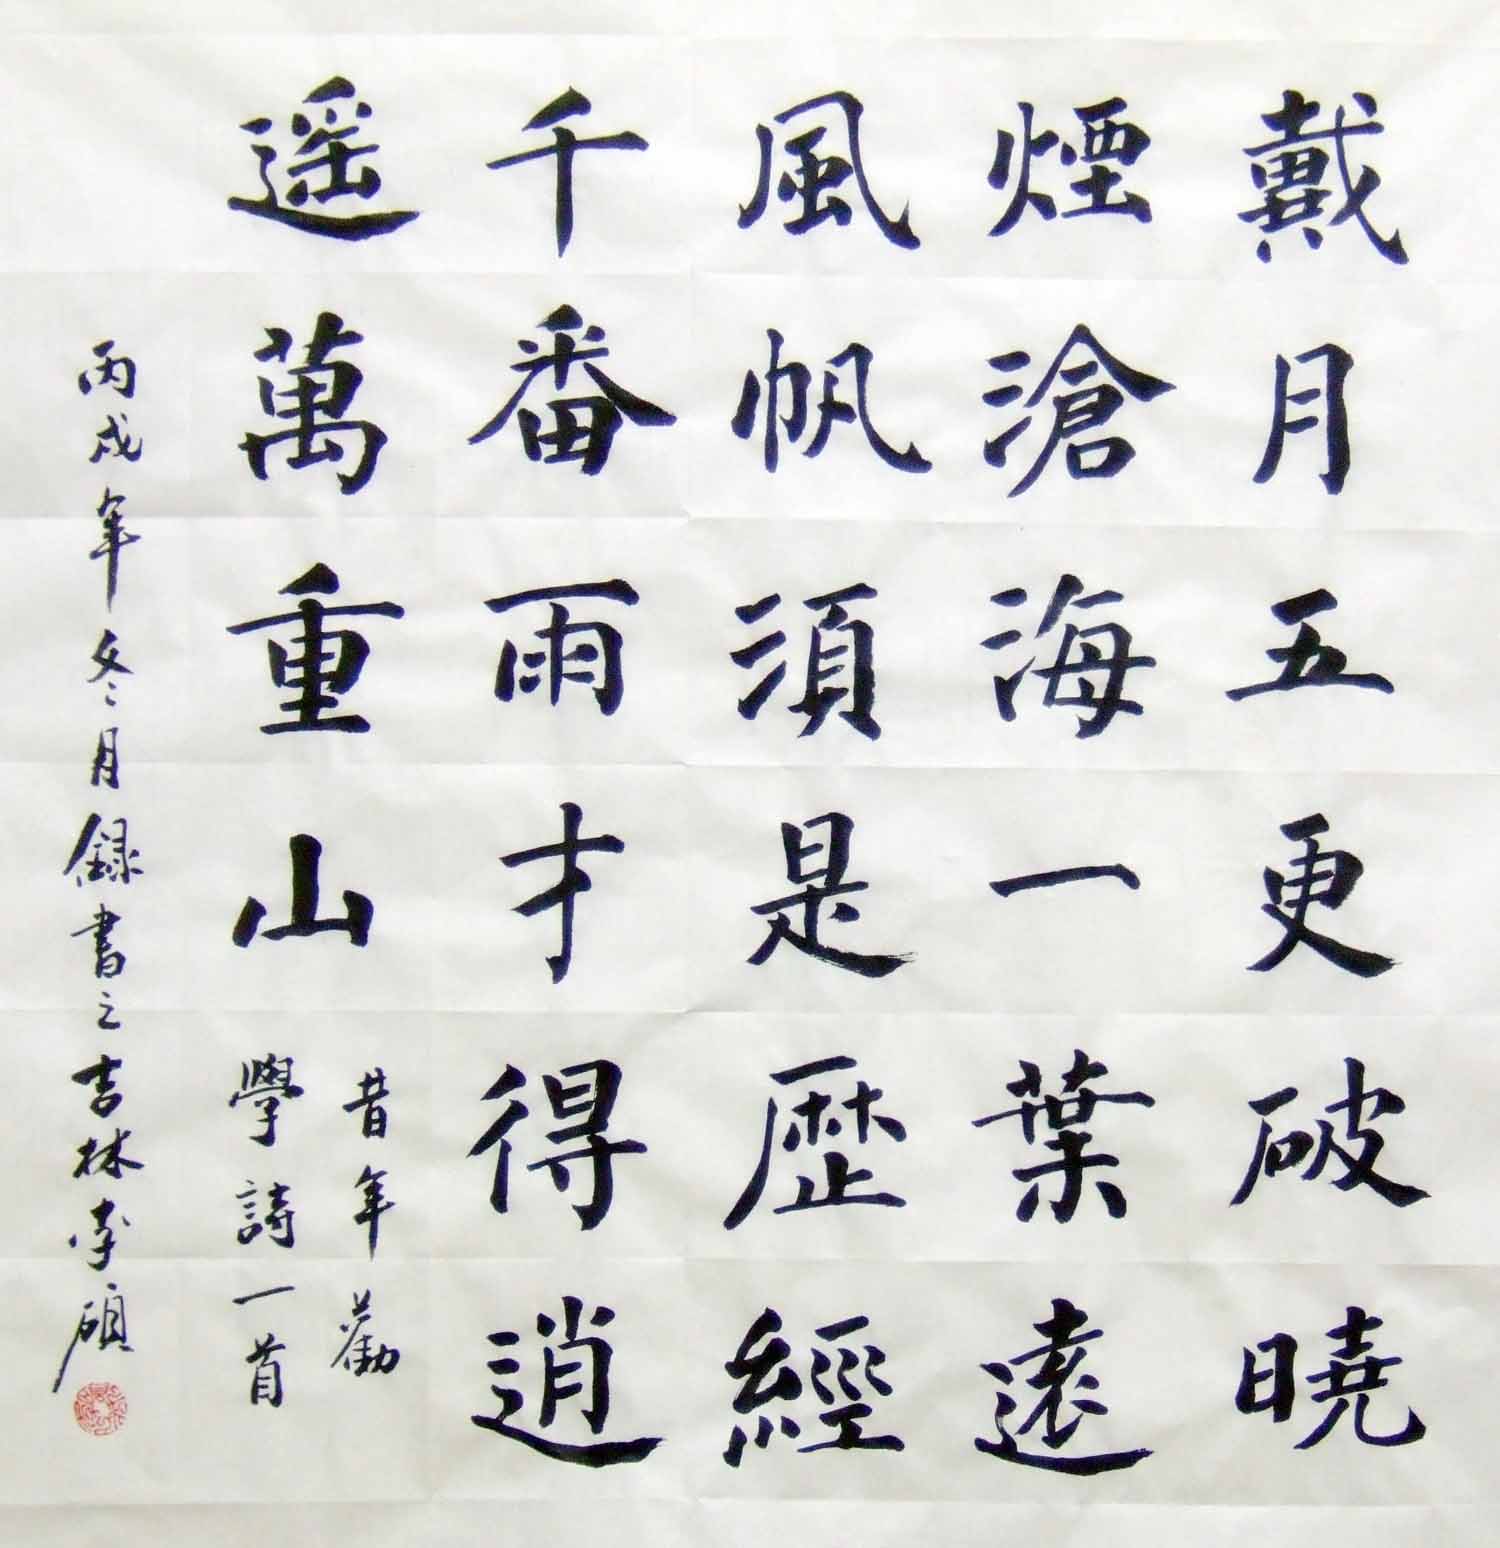 戴月五更破曉
煙滄海一葉遠
風帆須是歷經
千番雨才得逍
遥萬重山
昔年勸
學詩一首
丙戌年冬月録書之吉林李碩